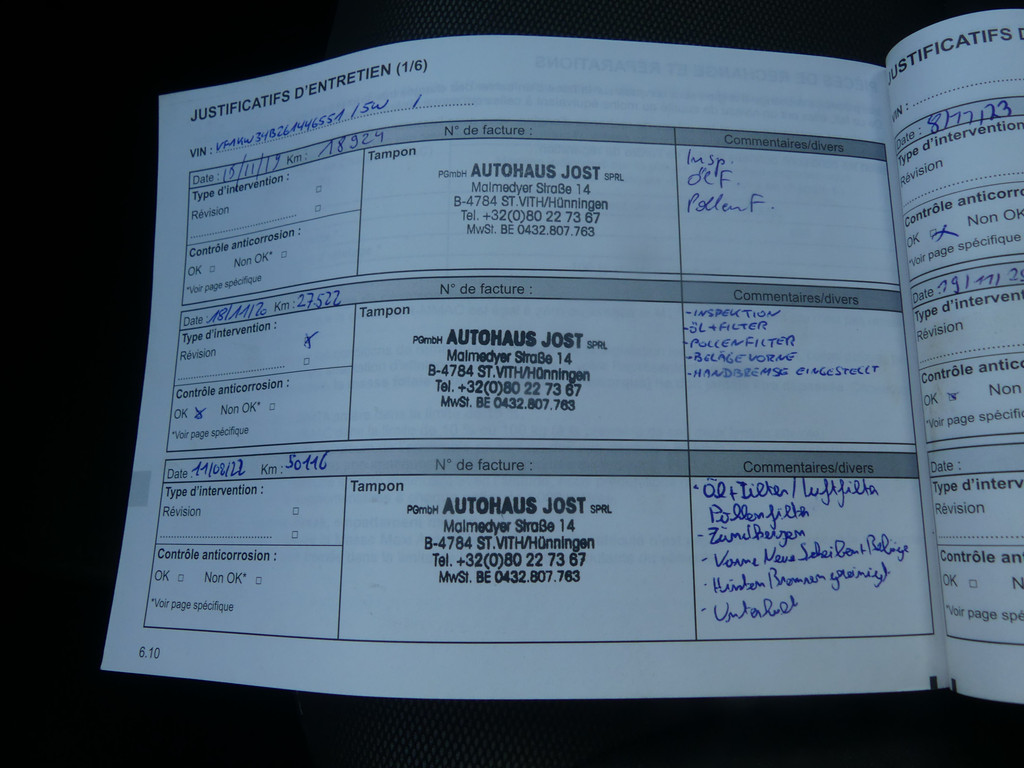 JUSTIFICATIFS D'ENTRETIEN (1/6)
VIN :
N° de facture :
Commentaires/divers
Date : 19/11/19 Km : 18924
Type d'intervention :
Révision
Contrôle anticorrosion :
OK Non OK*
*Voir page spécifique
Tampon
PGmbH AUTOHAUS JOST SPRL
Malmedyer Straße 14
B-4784 ST.VITH/Hünningen
Tel. +32(0)80 22 73 67
MwSt. BE 0432.807.763
Insp.
Öl F.
Pollen F.
Date : 18/11/20 Km : 27522
N° de facture :
Commentaires/divers
Type d'intervention :
Révision
Contrôle anticorrosion :
OK Non OK*
*Voir page spécifique
Tampon
PGmbH AUTOHAUS JOST SPRL
Malmedyer Straße 14
B-4784 ST.VITH/Hünningen
Tel. +32(0)80 22 73 67
MwSt. BE 0432.807.763
-INSPEKTION
-ÖL+FILTER
-POLLENFILTER
-BELÄGE VORNE
-HANDBREMSE EINGESTELLT
Date : 11/02/22 Km : 50116
N° de facture :
Commentaires/divers
Type d'intervention :
Révision
Contrôle anticorrosion :
OK Non OK*
*Voir page spécifique
Tampon
PGmbH AUTOHAUS JOST SPRL
Malmedyer Straße 14
B-4784 ST.VITH/Hünningen
Tel. +32(0)80 22 73 67
MwSt. BE 0432.807.763
- Öl+Filter/Luftfilter
Pollenfilter
- Zündkerzen
- Vorne Neue Scheiben+Beläge
- Hinten Bremsen gereinigt
6.10
JUSTIFICATIFS D
VIN :
Date : 8/11/23
Type d'intervention
Révision
Contrôle anticorro
OK Non OK
*Voir page spécifique
Date
Type d'interven
Révision
Contrôle antico
OK Non
*Voir page spécifi
Date :
Type d'interv
Révision
Contrôle anti
OK N
*Voir page sp